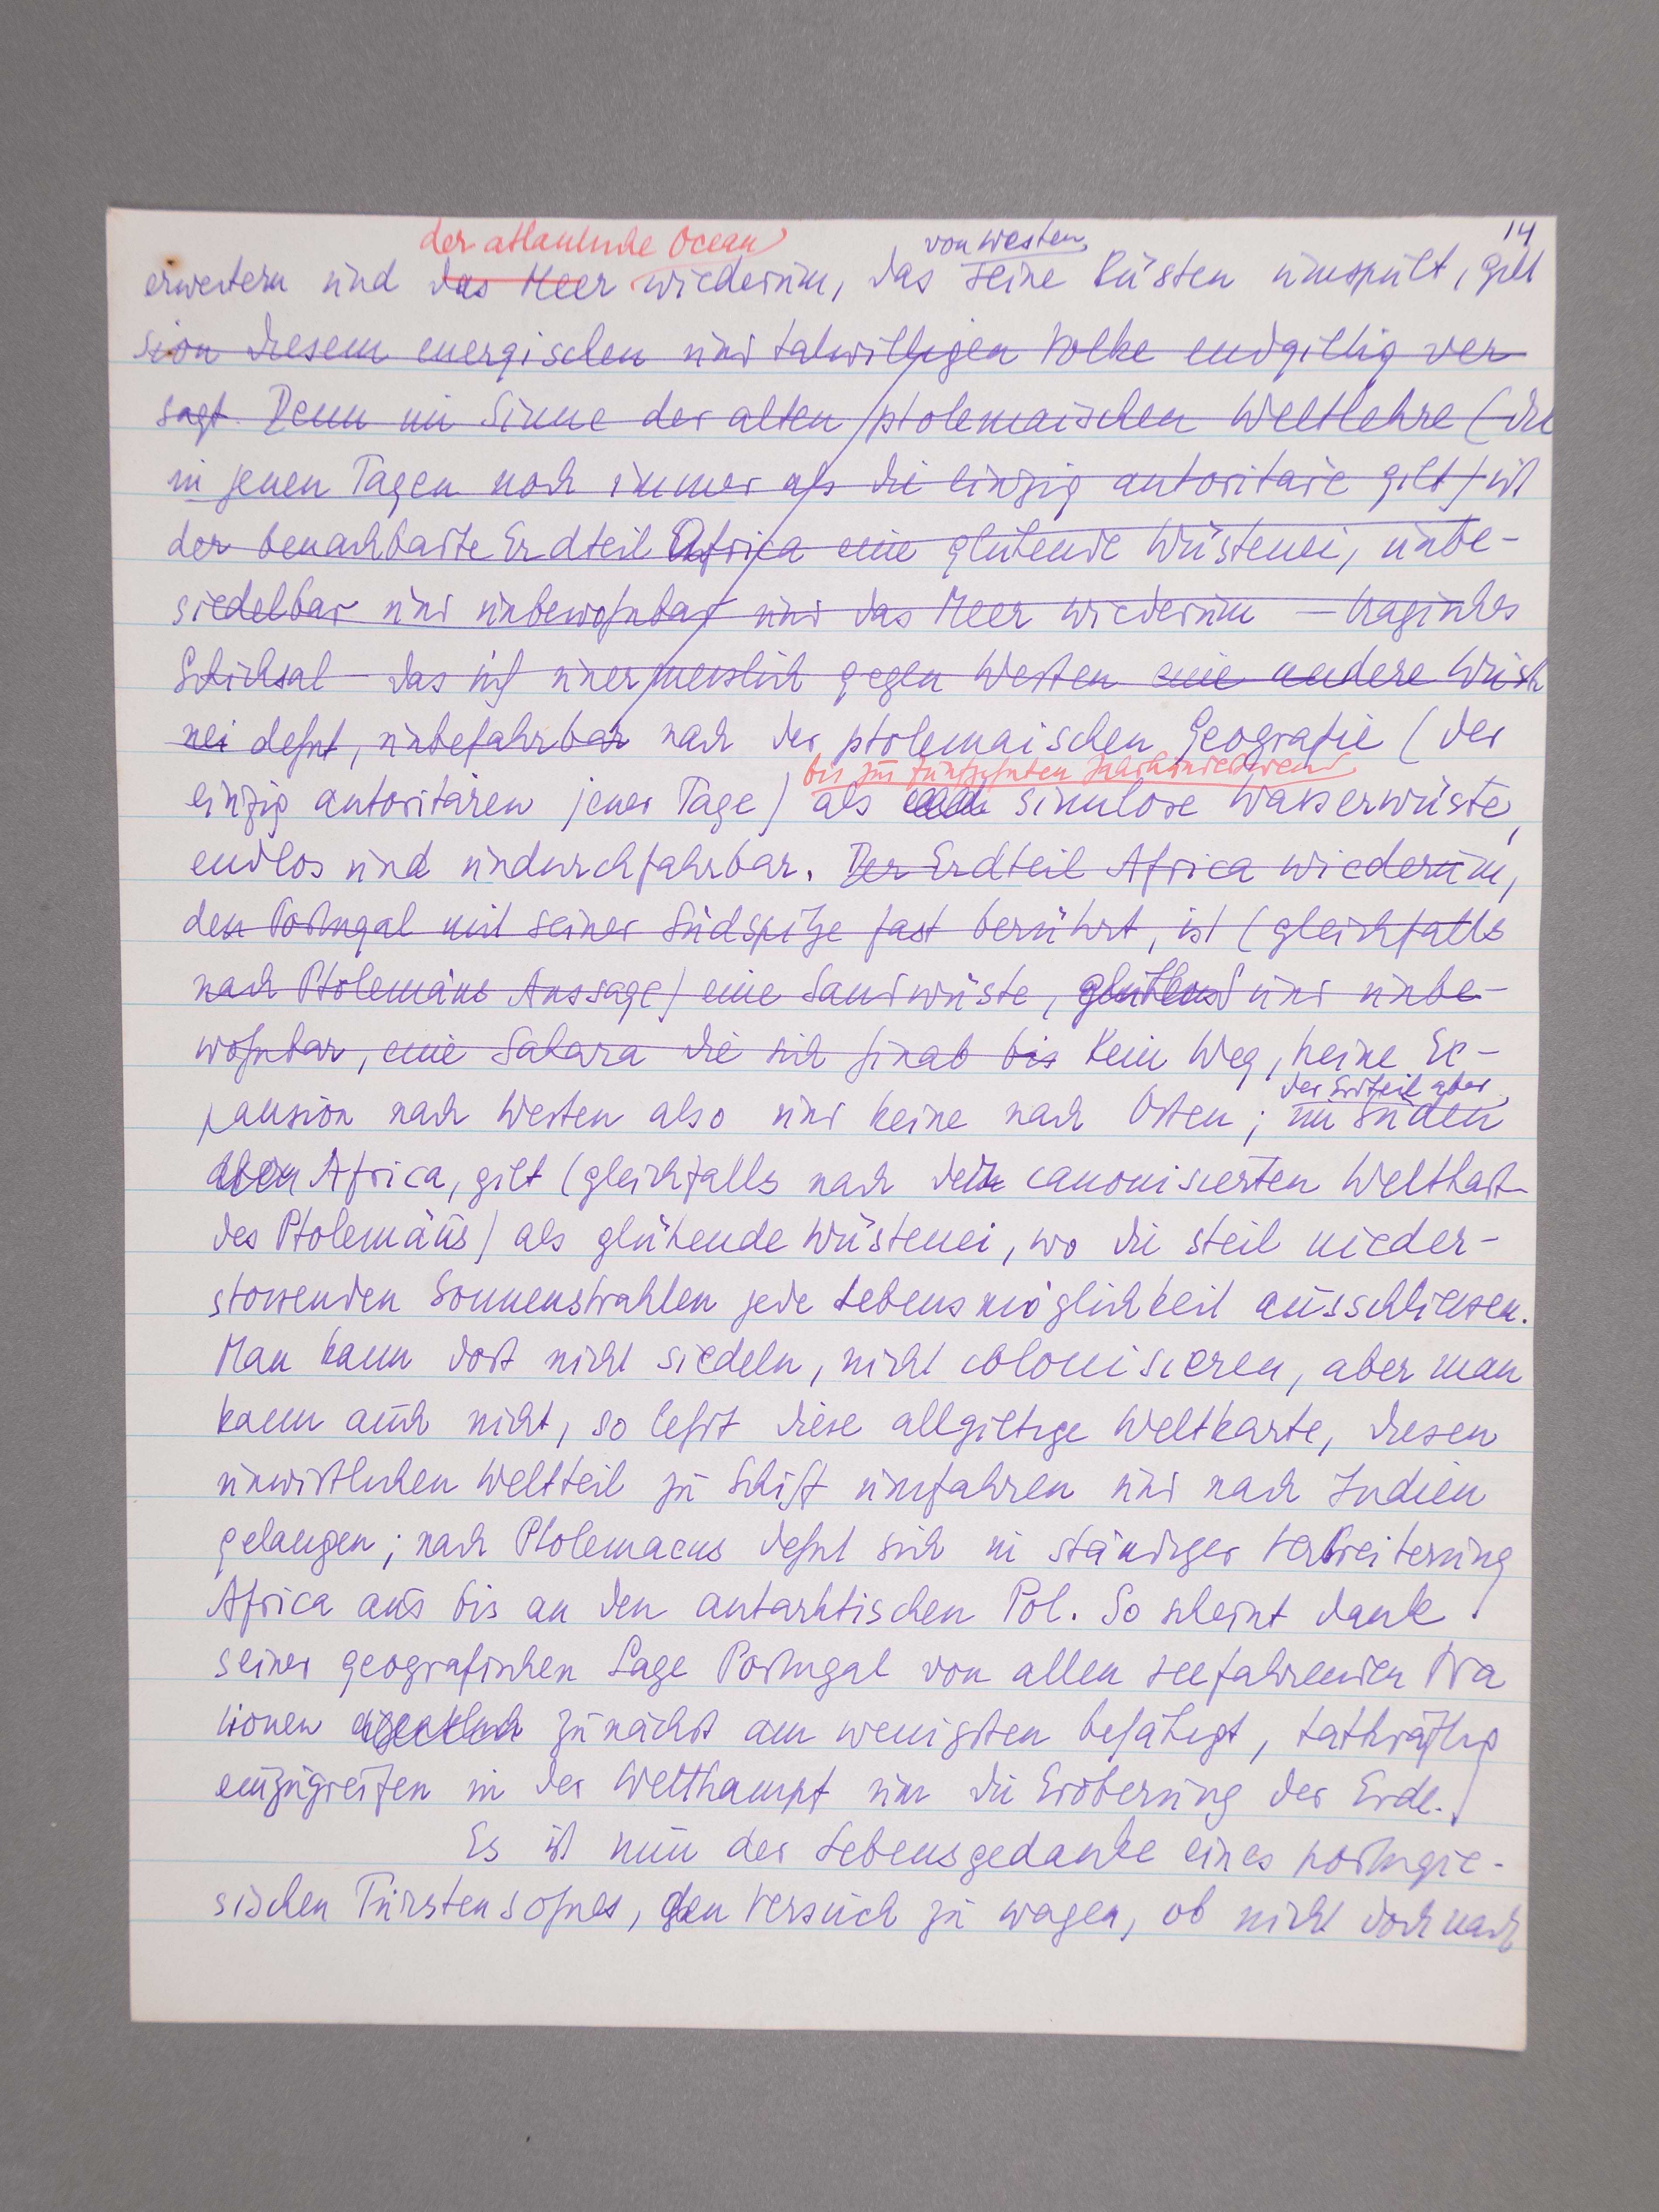 14
der atlantische Ocean von Westen
erweitern und das Meer wiederum, das seine Küsten umspült, gilt
sion diesem energischen und tatwilligen Volke endgiltig ver
sagt. Denn im Sinne der alten ptolemaischen Weltlehre (die
in jenen Tagen noch immer als die einzig autoritäre gilt) ist
der benachbarte Erdteil Africa eine glühende Wüstenei, unbe-
siedelbar und unbewohnbar und das Meer wiederum – tragisches
Schicksal – das sich unermesslich gegen Westen eine andere Wüste
nei dehnt, unbefahrbar nach der ptolemaischen Geografie (der
bis zum fünfzehnten Jahrhundert
einzig autoritären jener Tage) als sinnlose Wasserwüste,
endlos und undurchfahrbar. Der Erdteil Africa wiederum,
den Portugal mit seiner Südspitze fast berührt, ist (gleichfalls
nach Ptolemäus Aussage) eine Sandwüste, und unbe-
wohnbar, eine Sahara die sich hinab bis Kein Weg, keine Ex-
der Erdteil aber
pansion nach Westen also und keine nach Osten; im Süden
Africa, gilt (gleichfalls nach der canonisierten Weltkart
des Ptolemäus) als glühende Wüstenei, wo die steil nieder-
stossenden Sonnenstrahlen jede Lebensmöglichkeit ausschliessen.
Man kann dort nicht siedeln, nicht colonisieren, aber man
kann auch nicht, so lehrt diese allgiltige Weltkarte, diesen
unwirtlichen Weltteil zu Schiff umfahren und nach Indien
gelangen; nach Ptolemaeus dehnt sich in ständiger Verbreiterung
Africa aus bis an den antarktischen Pol. So scheint dank
seiner geografischen Lage Portugal von allen seefahrenden Na
tionen zunächst am wenigsten befähigt, tatkräftig
einzugreifen in der Weltkampf um die Eroberung der Erde.
Es ist nun der Lebensgedanke eines portugie-
sischen Fürstensohnes, den Versuch zu wagen, ob nicht doch nach